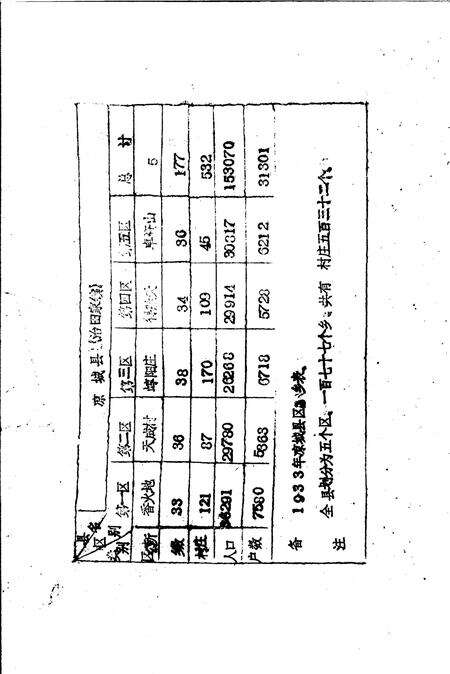 县名 凉城县(治田家镇)
区别
类别 第一区 第二区 第三区 第四区 第五区 总 计
区所 香火地 天成村 5
乡数 33 36 38 34 36 177
村庄 121 87 170 109 45 532
人口 36291 29780 26268 29914 30817 153070
户数 7580 5863 6718 5728 6212 31301
备 注
1933年凉城县区乡表、
全县划分为五个区、一百七十七个乡、共有 村庄五百三十二个、